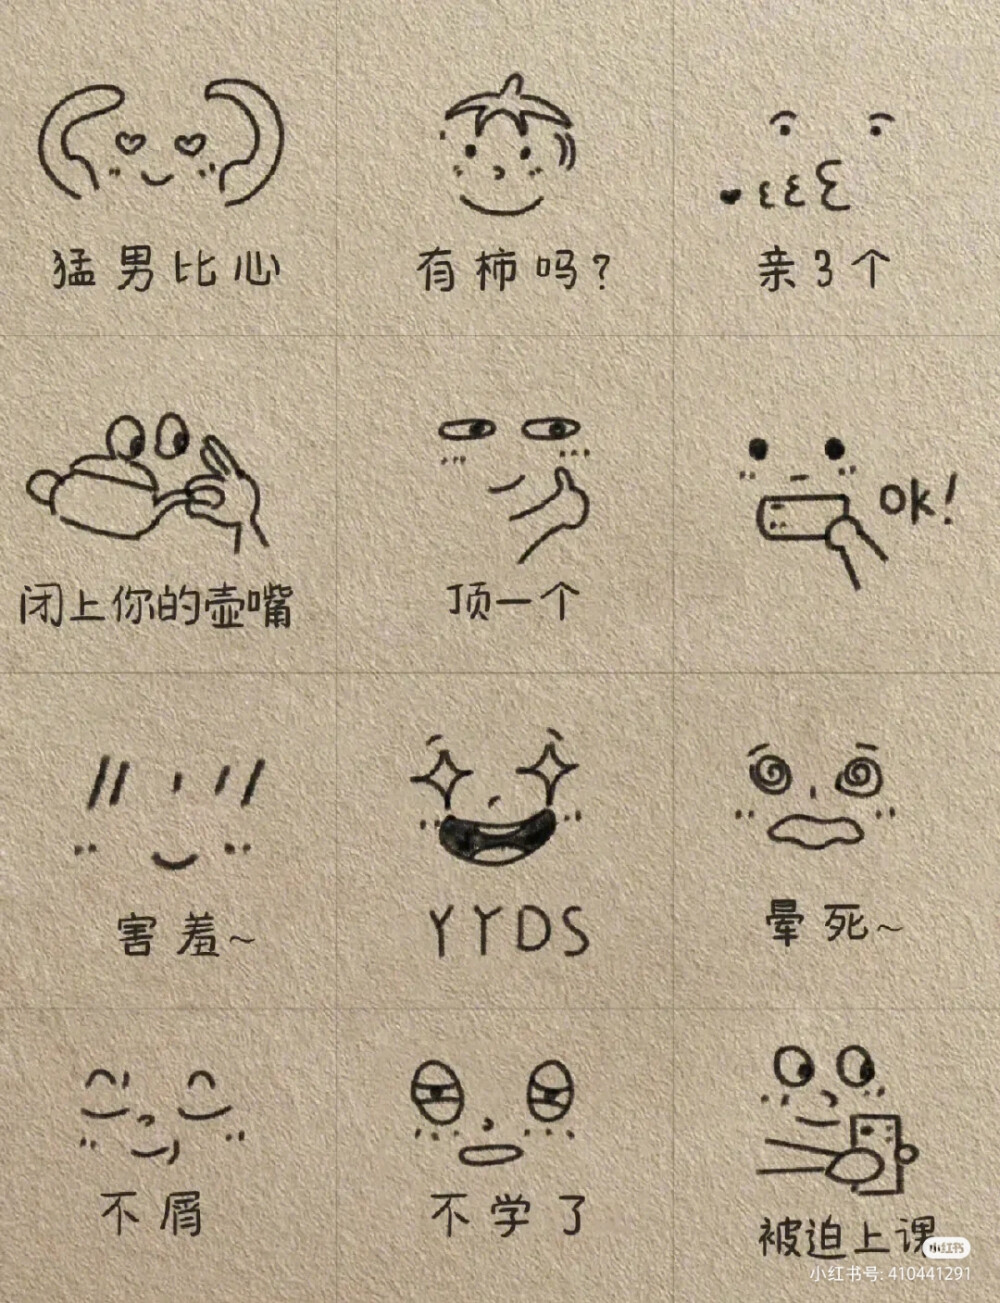 猛男比心
有柿吗?
亲3个
闭上你的壶嘴
顶一个
OK!
害羞~
YYDS
晕死~
不屑
不学了
被迫上课
小红书
小红书号: 410441291